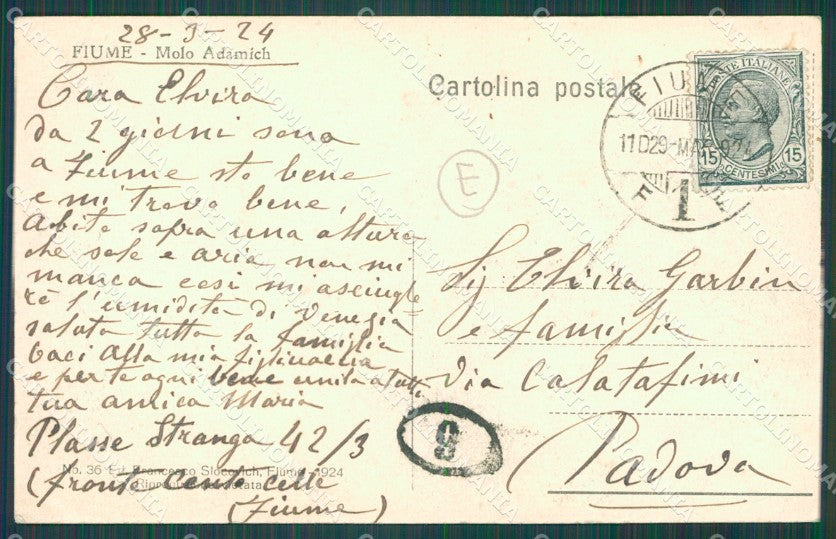 28-3-24
FIUME - Molo Adamich
Cara Elvira
da 2 giorni sono
a Fiume sto bene
e mi trovo bene,
Abito sopra una altura
che sole e aria non mi
manca così mi asciughe
rè l'umidità di Venezia
saluta tutta la famiglia
baci alla mia figlioccia
e per te ogni bene unita a tutti
tua amica Maria
42/3
No. 36 Ed. Francesco Slocovich, Fiume - 1924
Riproduzione vietata
(Fiume)
Cartolina postale
FIUME
11D29-MAR 924
1
POSTE ITALIANE
15 15
CENTESIMI
E
Sig Elvira Garbin
e famiglia
Via Calatafimi
Padova
9
CARTOLINOMANIA